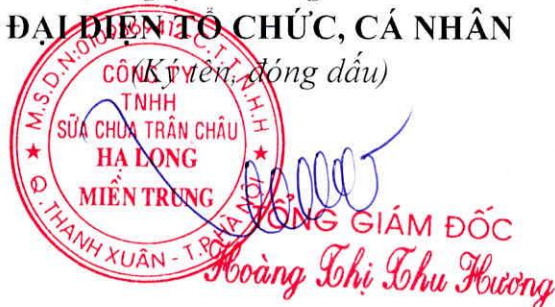 ĐẠI DIỆN TỔ CHỨC, CÁ NHÂN
(Ký tên, đóng dấu)
C.T.T.N.H.H
CÔNG TY
TNHH
SỮA CHUA TRÂN CHÂU
HẠ LONG
MIỀN TRUNG
Q. THANH XUÂN - T.P HÀ NỘI
TỔNG GIÁM ĐỐC
Hoàng Thị Thu Hương